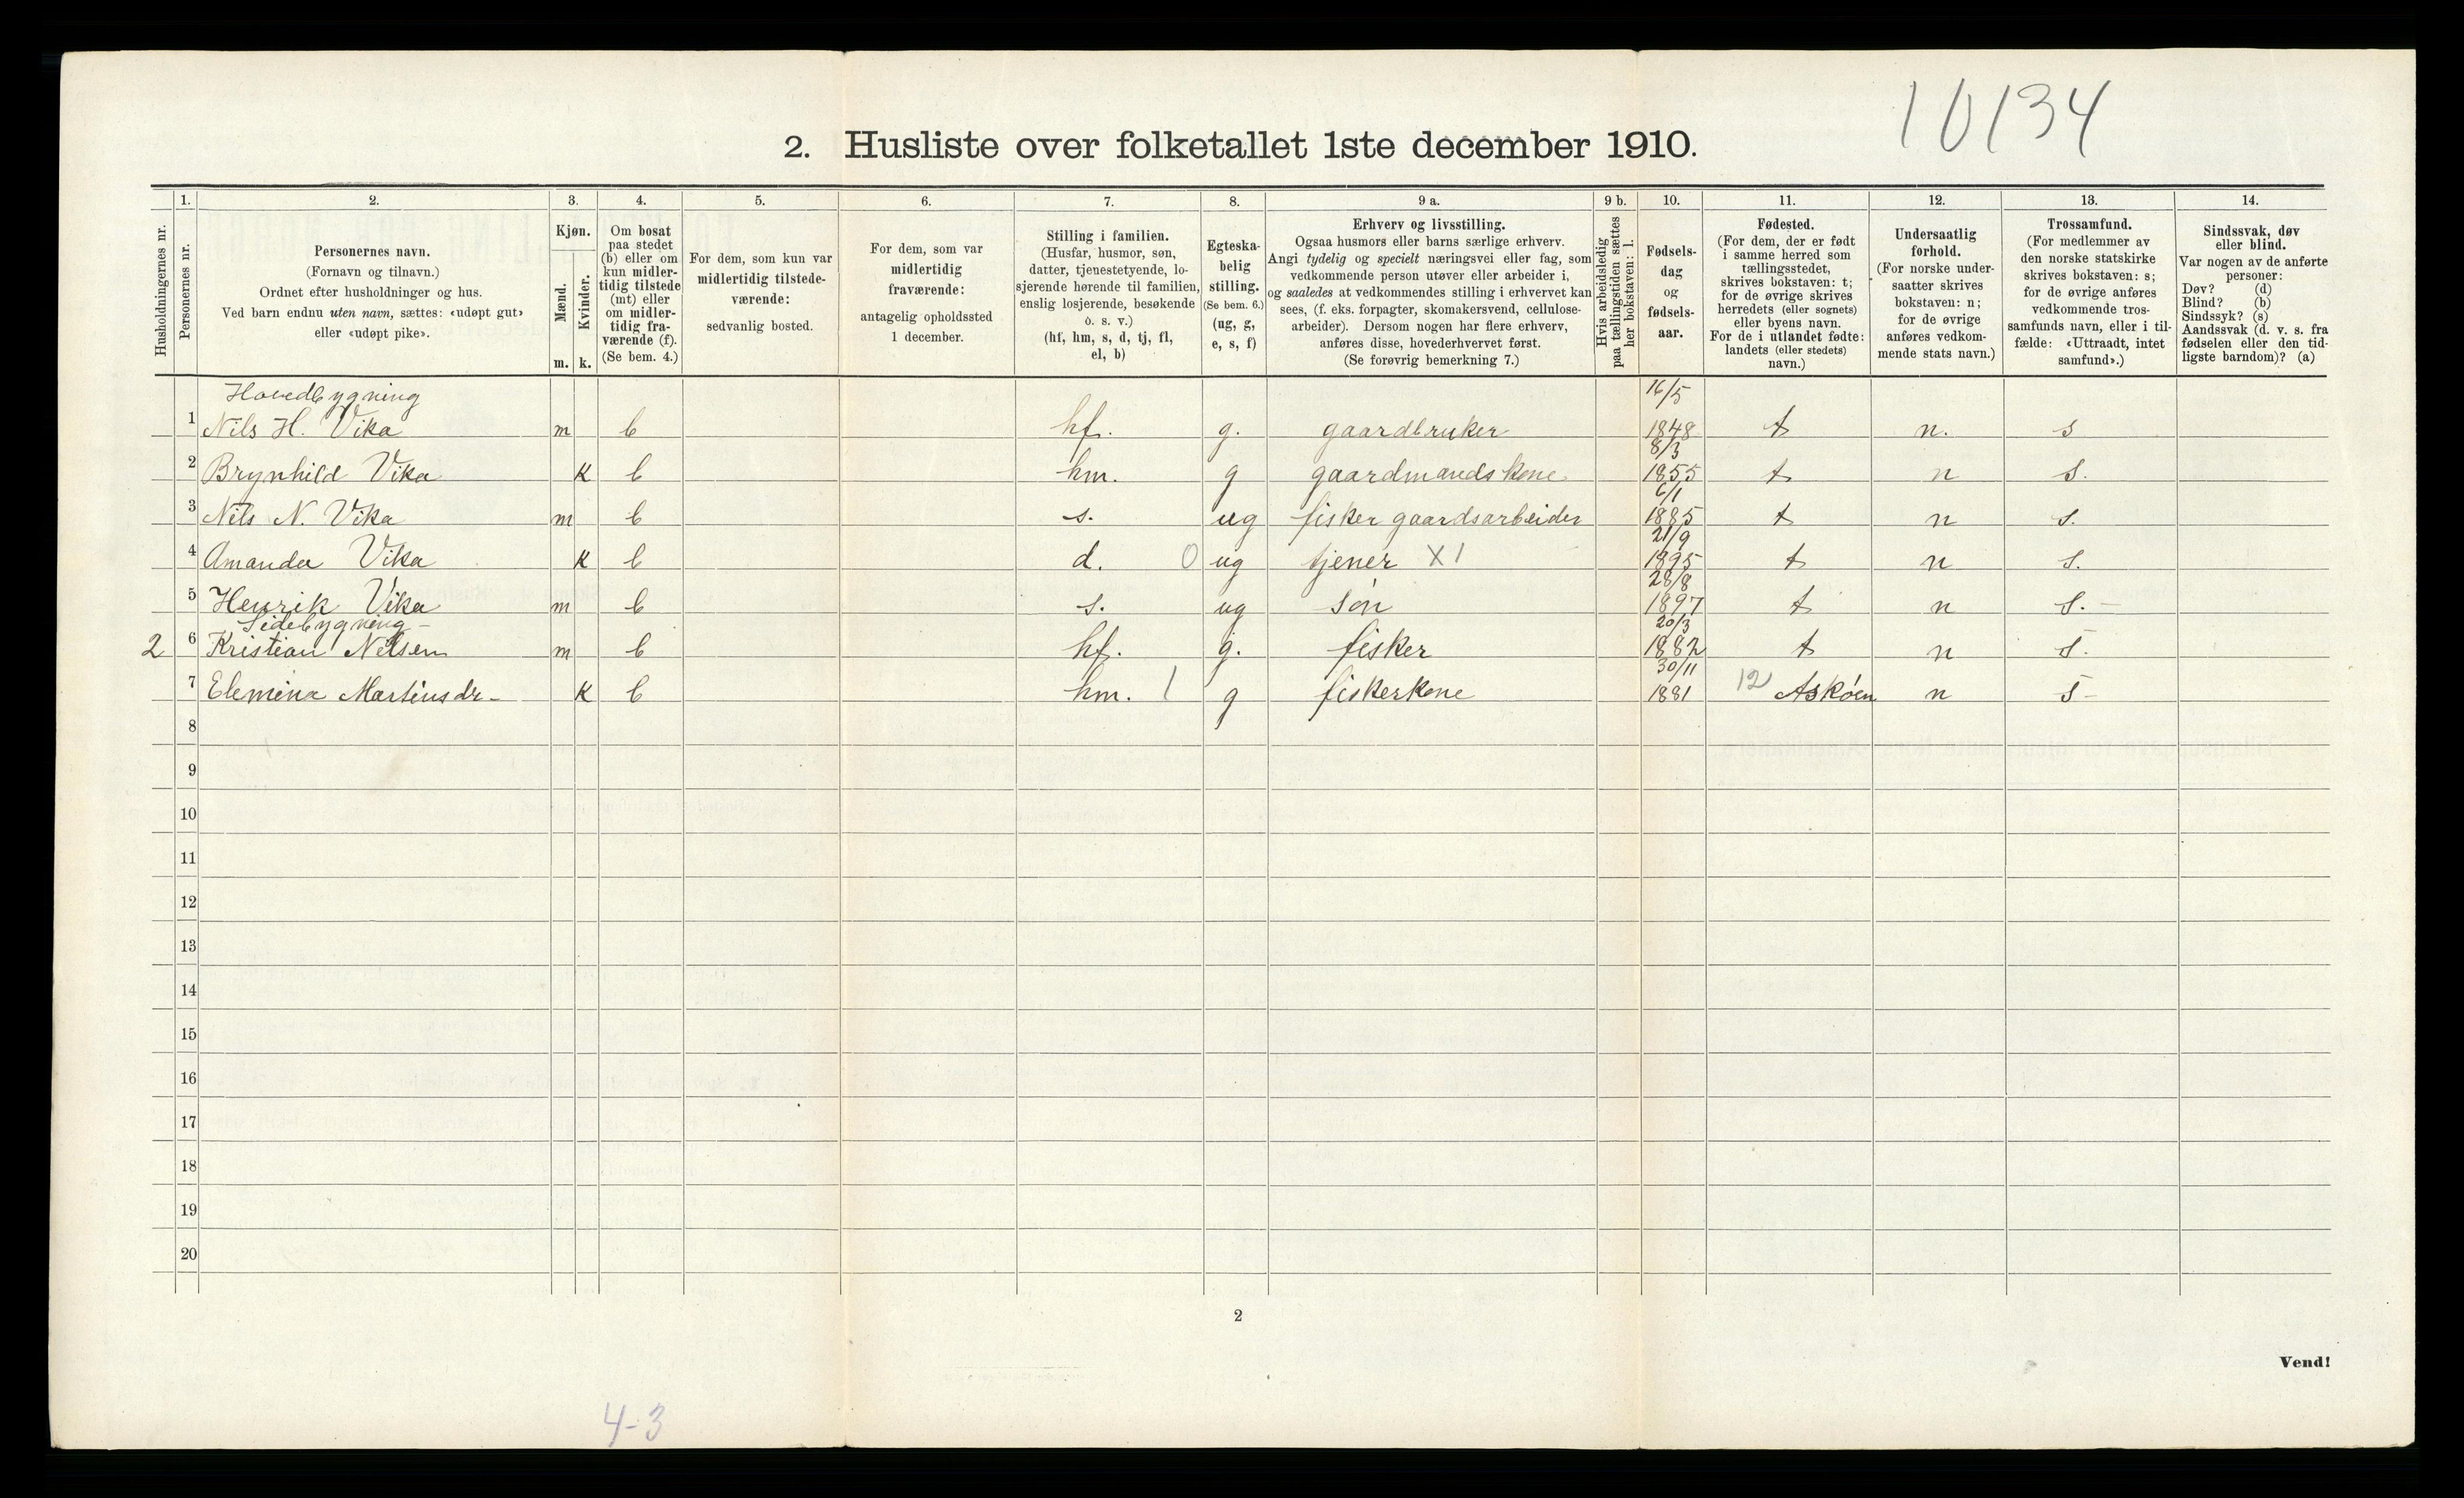 10134
2. Husliste over folketallet 1ste december 1910.
1. 2. 3. 4. 5. 6. 7. 8. 9 a. 9 b. 10. 11. 12. 13. 14.
Husholdningernes nr.
Personernes nr.
Personernes navn.
(Fornavn og tilnavn.)
Ordnet efter husholdninger og hus.
Ved barn endnu uten navn, sættes: «udøpt gut»
eller «udøpt pike».
Kjøn.
Mænd.
Kvinder.
m. k.
Om bosat
paa stedet
(b) eller om
kun midler-
tidig tilstede
(mt) eller
om midler-
tidig fra-
værende (f).
(Se bem. 4.)
For dem, som kun var
midlertidig tilstede-
værende:
sedvanlig bosted.
For dem, som var
midlertidig
fraværende:
antagelig opholdssted
1 december.
Stilling i familien.
(Husfar, husmor, søn,
datter, tjenestetyende, lo-
sjerende hørende til familien,
enslig losjerende, besøkende
o. s. v.)
(hf, hm, s, d, tj, fl,
el, b)
Egteska-
belig
stilling.
(Se bem. 6.)
(ug, g,
e, s, f)
Erhverv og livsstilling.
Ogsaa husmors eller barns særlige erhverv.
Angi tydelig og specielt næringsvei eller fag, som
vedkommende person utøver eller arbeider i,
og saaledes at vedkommendes stilling i erhvervet kan
sees, (f. eks. forpagter, skomakersvend, cellulose-
arbeider). Dersom nogen har flere erhverv,
anføres disse, hovederhvervet først.
(Se forøvrig bemerkning 7.)
Hvis arbeidsledig
paa tællingstiden sættes
her bokstaven: l.
Fødsels-
dag
og
fødsels-
aar.
Fødested.
(For dem, der er født
i samme herred som
tællingsstedet,
skrives bokstaven: t;
for de øvrige skrives
herredets (eller sognets)
eller byens navn.
For de i utlandet fødte:
landets (eller stedets)
navn.)
Undersaatlig
forhold.
(For norske under-
saatter skrives
bokstaven: n;
for de øvrige
anføres vedkom-
mende stats navn.)
Trossamfund.
(For medlemmer av
den norske statskirke
skrives bokstaven: s;
for de øvrige anføres
vedkommende tros-
samfunds navn, eller i til-
fælde: «Uttraadt, intet
samfund».)
Sindssvak, døv
eller blind.
Var nogen av de anførte
personer:
Døv? (d)
Blind? (b)
Sindssyk? (s)
Aandssvak (d. v. s. fra
fødselen eller den tid-
ligste barndom)? (a)
Hovedbygning
1 Nils H. Vika m b hf. g. gaardbruker 16/5 1848 t n. s
2 Brynhild Vika k b hm. g gaardmandskone 8/3 1855 t n s.
3 Nils N. Vika m b s. ug fisker gaardsarbeider 6/1 1885 t n s.
4 Amanda Vika k b d. 0 ug tjener X 1 21/9 1895 t n s.
5 Henrik Vika m b s. ug søn 28/8 1897 t n s. –
Sidebygning –
2 6 Kristian Nilsen m b hf. g. fisker 20/3 1882 t n s.
7 Elemina Martinsdr. k b hm. 1 g fiskerkone 30/11 1881 12 Askøen n s –
8
9
10
11
12
13
14
15
16
17
18
19
20
2
Vend!
4-3